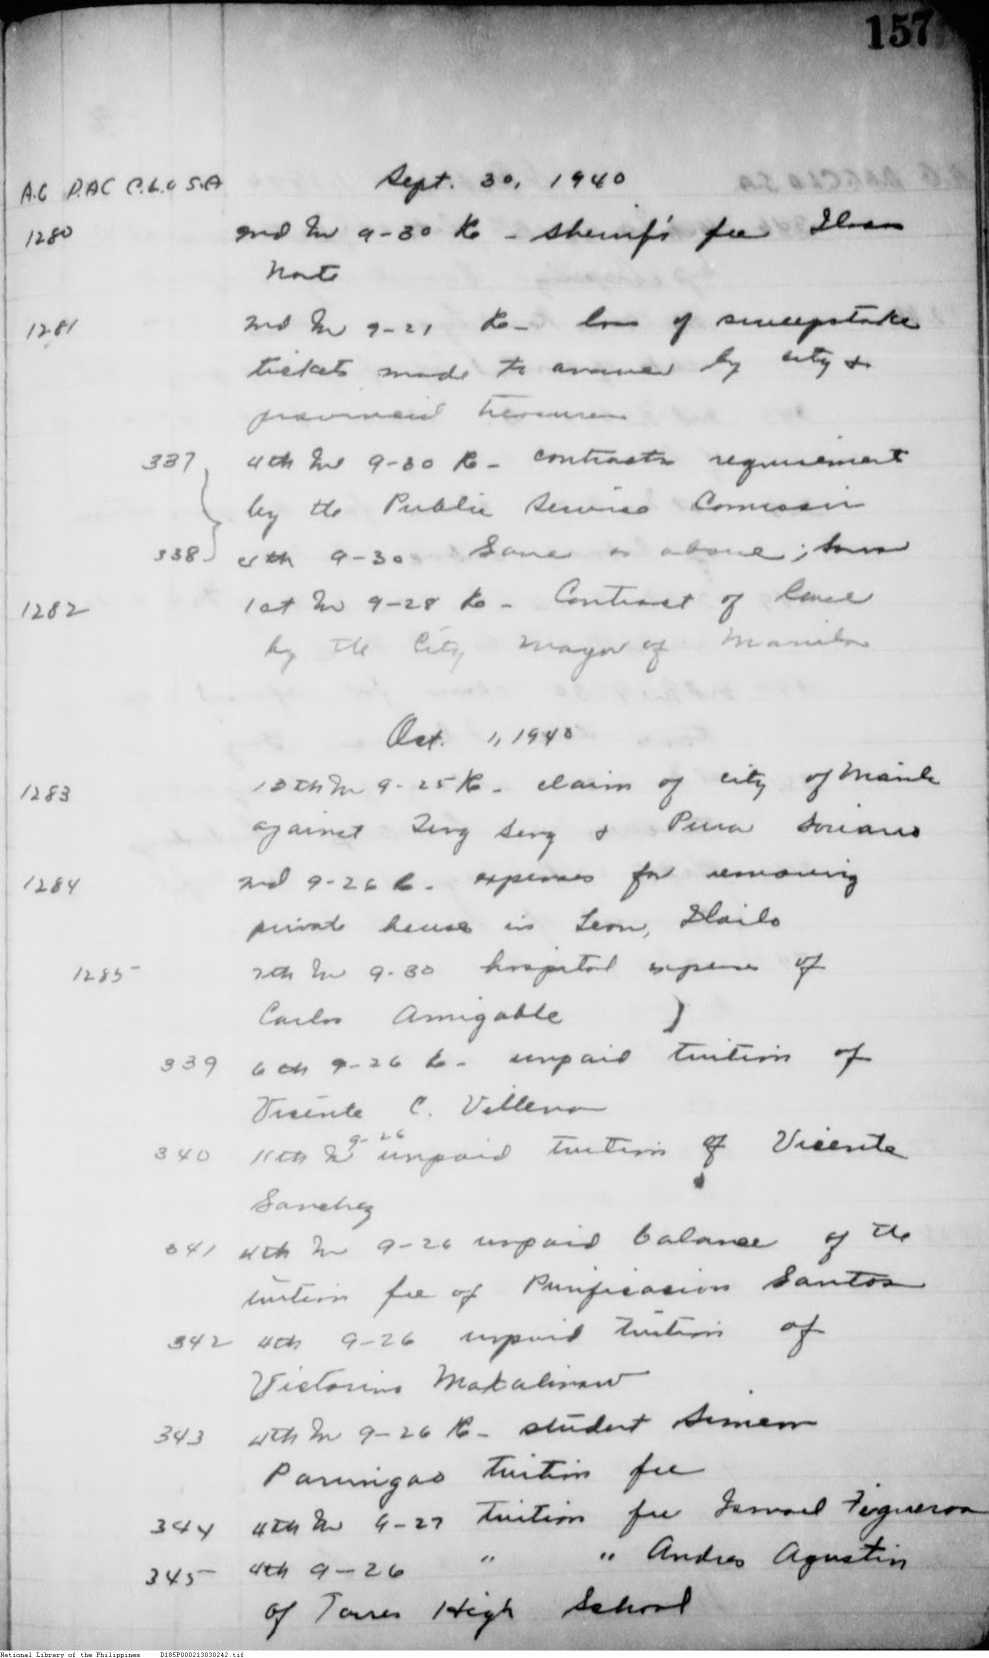 157
A.G D.AC C.L.O S.A Sept. 30, 1940
1280 2nd In 9-30 Re - sheriff's fee Ilocos
Norte
1281 2nd In 9-21 Re - loss of sweepstake
tickets made to answer by city &
provincial treasurer
337 4th In 9-30 Re - contracts requirement
by the Public Service Comission
338 4th 9-30 Same as above; same
1282 1st In 9-28 Re - Contract of lease
by the City Mayor of Manila
Oct. 1, 1940
1283 10th In 9-25 Re - claim of city of Manila
against Seng & Pura Soriano
1284 2nd 9-26 Re - expenses for removing
private house in Leon, Iloilo
1285 7th In 9-30 hospital expenses of
Carlos Amigable
339 6th 9-26 Re - unpaid tuition of
Vicente C. Villena
340 11th In 9-26 unpaid tuition of Vicente
Sanchez
341 4th In 9-26 unpaid balance of the
tuition fee of Purificacion Santos
342 4th 9-26 unpaid tuition of
Victorino Makalinaw
343 4th In 9-26 Re - student Simeon
Parungao tuition fee
344 4th In 9-27 tuition fee Ismael Figueroa
345 4th 9-26 " " Andres Agustin
of Torres High School
National Library of the Philippines D185P000213030242.tif